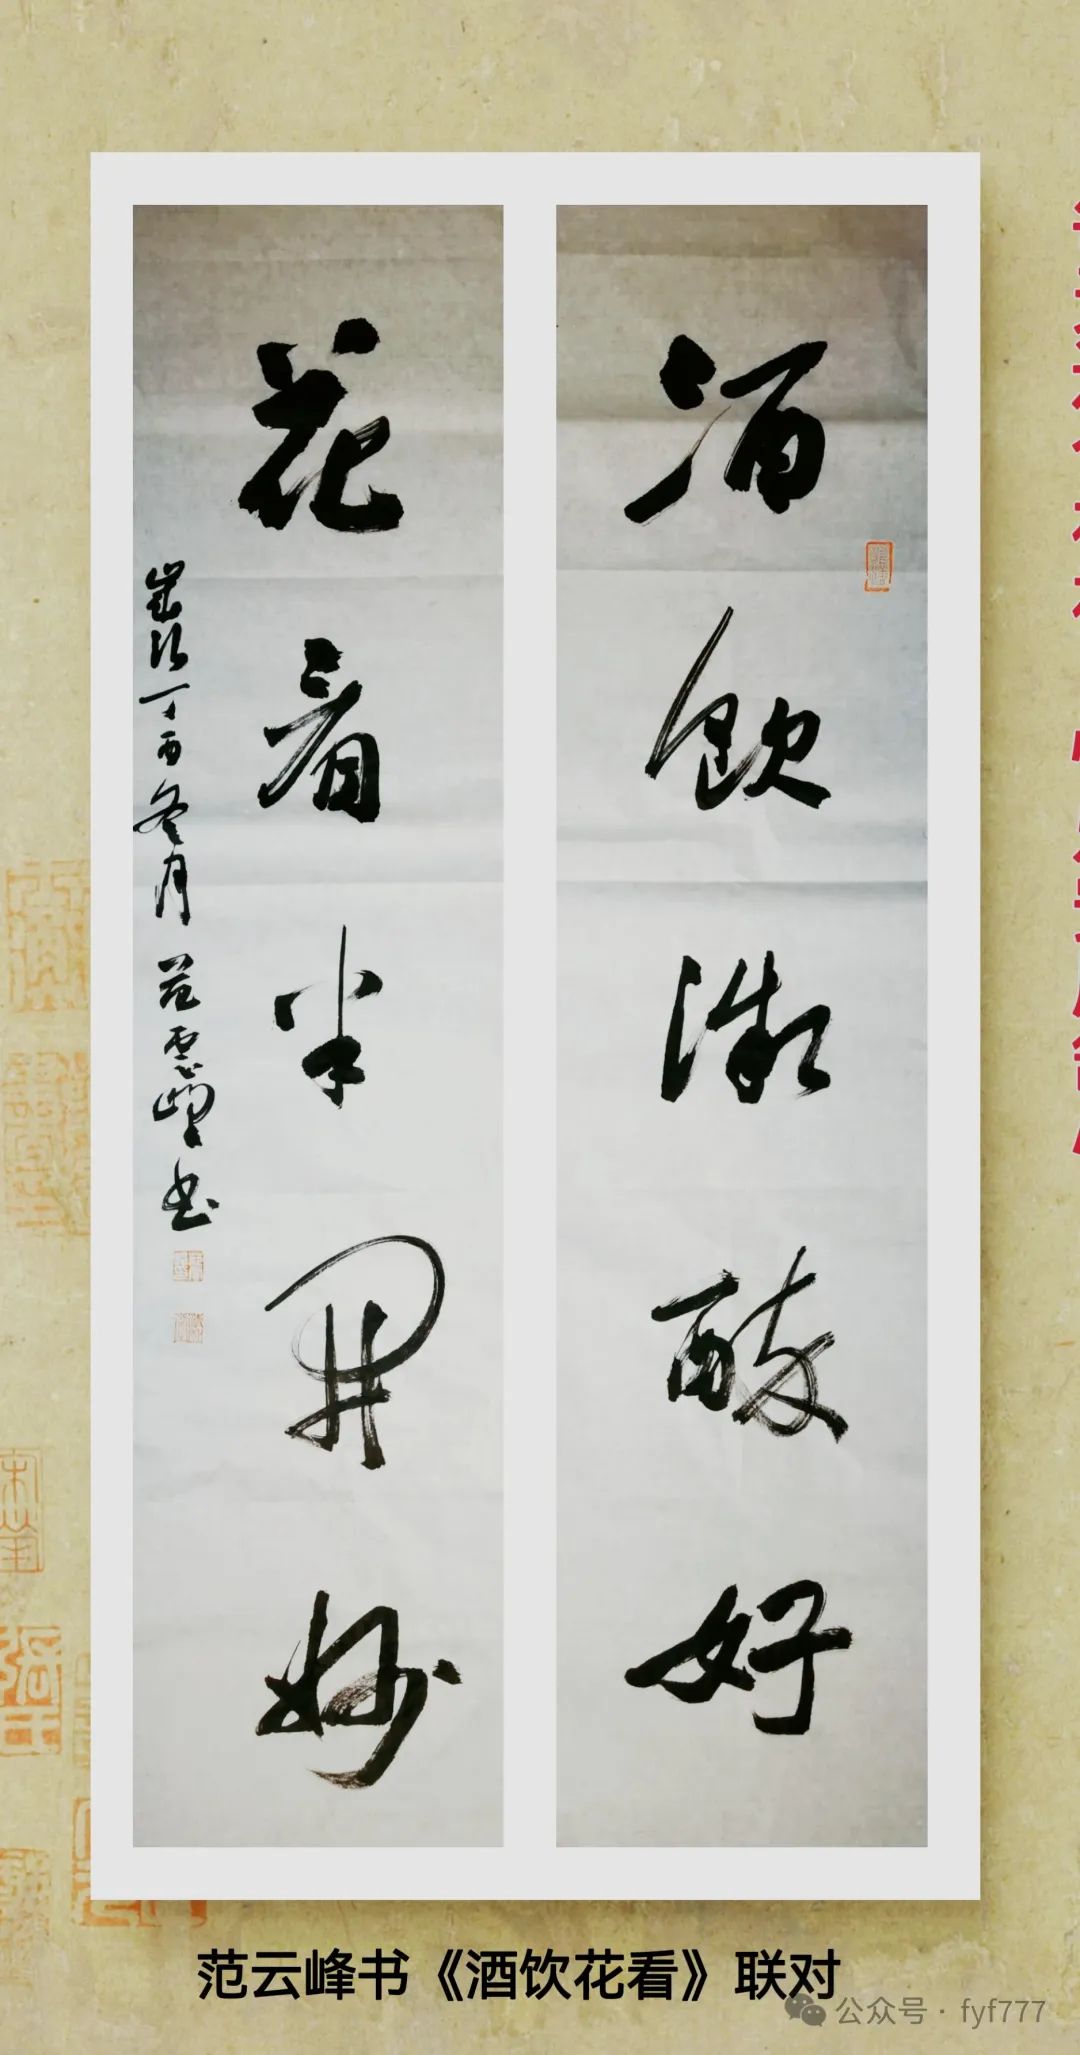 酒飲微醉好
花看半開妙
歲次丁酉冬月 范雲峰书
范云峰书《酒饮花看》联对
公众号 · fyf777